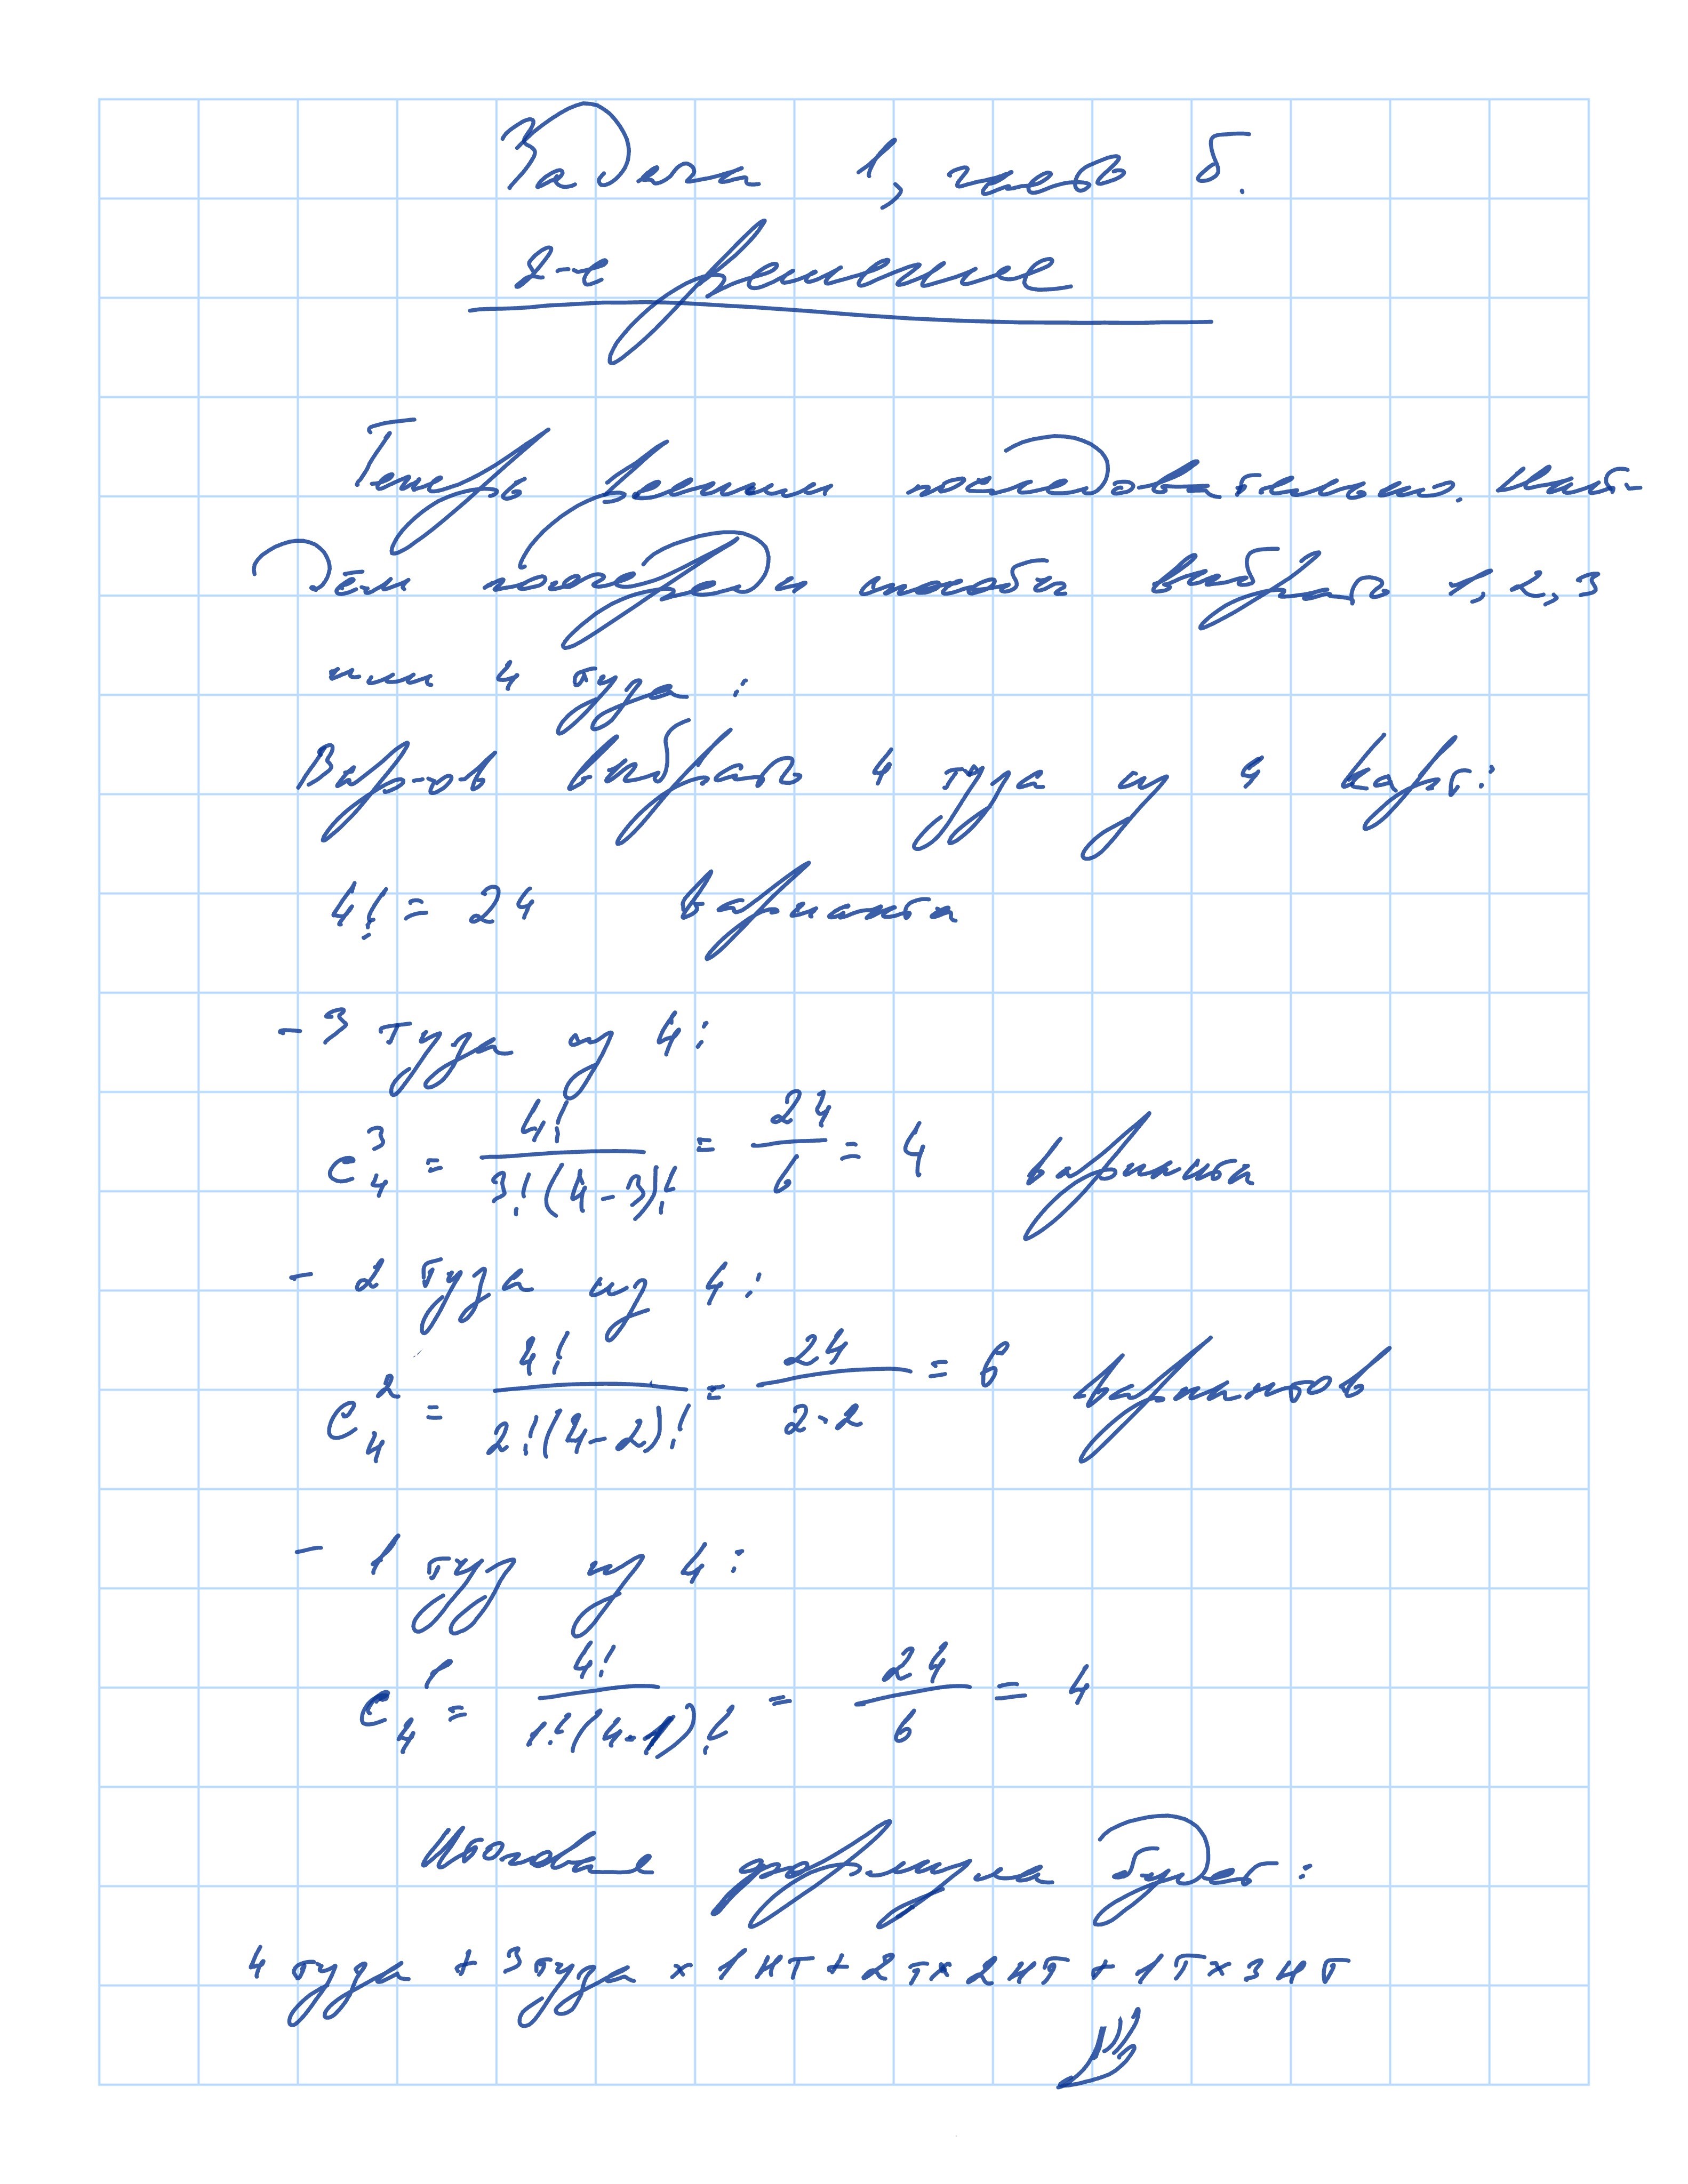 Задача 1, часть б.
2-е решение
Теперь решим последовательно. Найдём
посереди способы выбрать 1, 2, 3
или 4 туза:
Вар-ов выбрать 4 туза из 4 карт:
4! = 24 варианта
- 3 туза из 4:
C₄³ = 4! / 3!(4-3)! = 24 / 6 = 4 варианта
- 2 туза из 4:
C₄² = 4! / 2!(4-2)! = 24 / 2·2 = 6 вариантов
- 1 туз из 4:
C₄¹ = 4! / 1!(4-1)! = 24 / 6 = 4
Итоговая формула будет:
4 туза + 3 туза × 1 нт + 2 т × 2 нт + 1 т × 3 нт